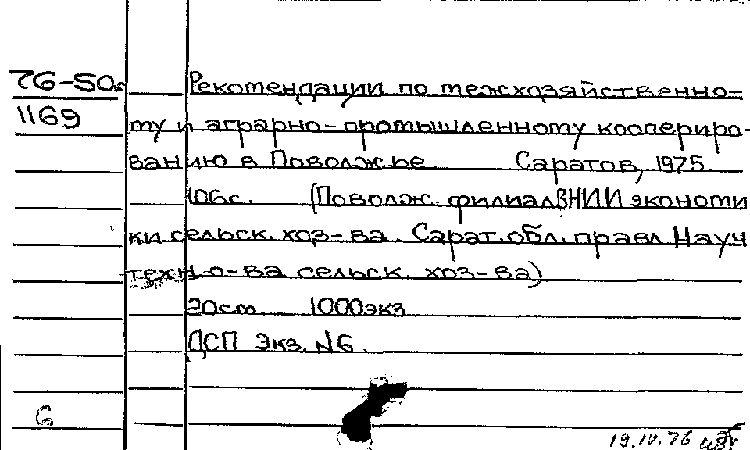 76-50
1169
Рекомендации по межхозяйственно-
му и аграрно-промышленному коопериро-
ванию в Поволжье Саратов, 1975
106с. (Поволж. филиал ВНИИ экономи
ки сельск. хоз-ва. Сарат. обл. правл Науч
техн о-ва сельск. хоз-ва)
20см 1000экз
ДСП Экз. №6.
6
19.IV.76